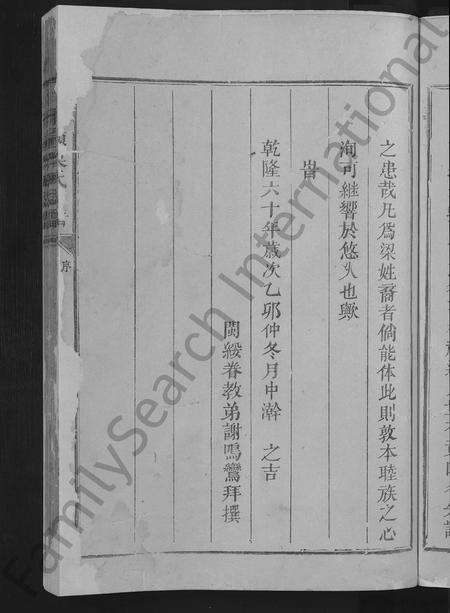 之患哉凡爲梁姓裔者倘能体此則敦本睦族之心
洵可継響於悠久也歟
旹
乾隆六十年歲次乙夘仲冬月中澣 之吉
閩綏眷教弟謝鳴鸞拜撰
序
FamilySearch International